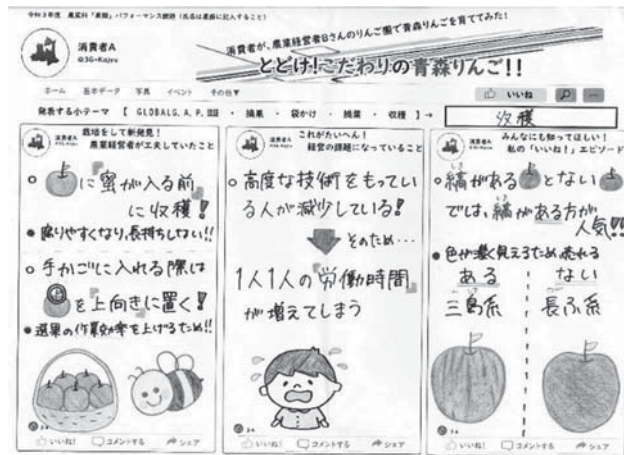 令和3年度 農業科「果樹」パフォーマンス課題（氏名は裏面に記入すること）
消費者A
@3G-Kajru
消費者が、農業経営者Bさんのりんご園で青森りんごを育ててみた！
とどけ！こだわりの青森りんご！！
ホーム 基本データ 写真 イベント その他▼
いいね
発表する小テーマ 【 GLOBALG.A.P.認証 ・ 摘果 ・ 袋かけ ・ 摘葉 ・ 収穫 】→
収穫
消費者A
栽培をして新発見！
農業経営者が工夫していたこと
○ に「蜜が入る前」
に収穫！
●腐りやすくなり、長持ちしない!!
○手かごに入れる際は
を上向きに置く！
●選果の作業効率を上げるため!!
いいね！ コメントする シェア
消費者A
これがたいへん！
経営の課題になっていること
○高度な技術をもってい
る人が減少している！
そのため…
1人1人の「労働時間」
が増えてしまう
いいね！ コメントする シェア
消費者A
みんなにも知ってほしい！
私の「いいね！」エピソード
○縞がある とない
しま
では、縞がある方が
人気!!
●色が濃く見えるため売れる
ある ない
三島系 長ふ系
いいね！ コメントする シェア